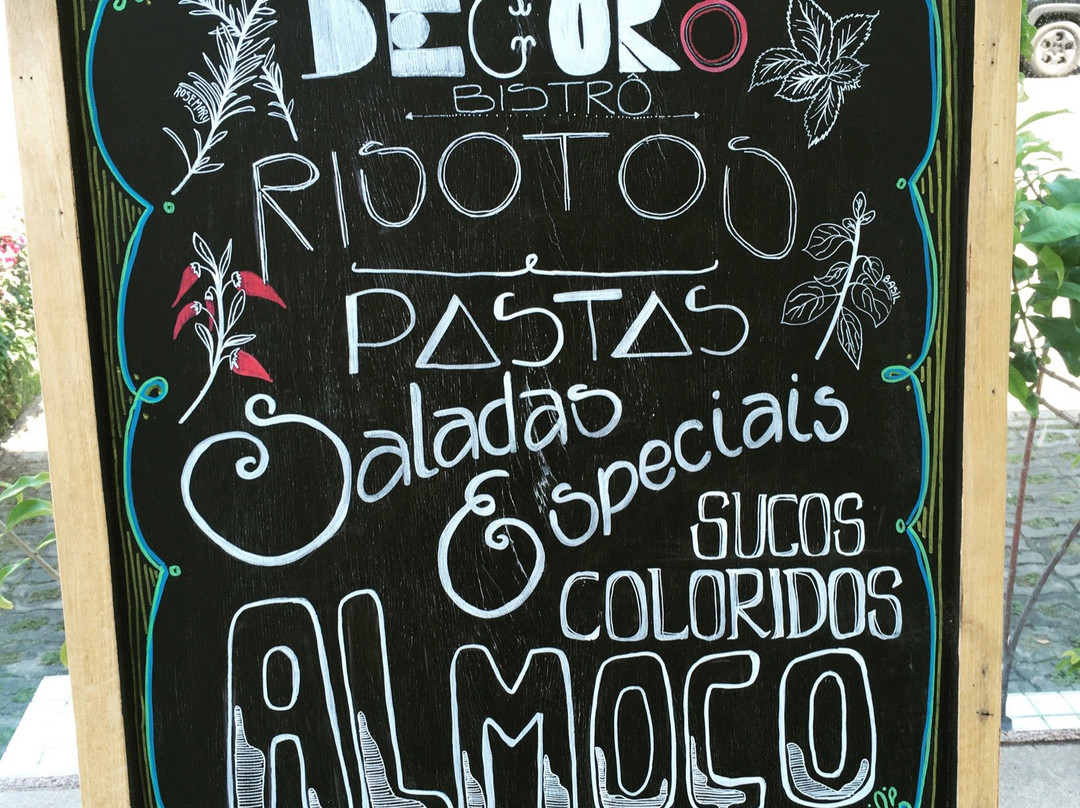 DECORO
BISTRÔ
ROSEMARY
RISOTOS
BASIL
PASTAS
Saladas
Especiais
SUCOS
COLORIDOS
ALMOCO